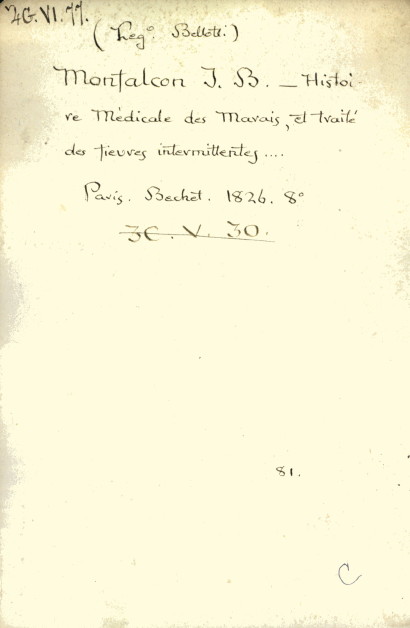 4G.VI.77.
(Leg°. Bellotti.)
Monfalcon J. B. — Histoi
re Médicale des Marais, et traité
des fievres intermittentes ....
Paris. Bechet. 1826. 8°
3C. V. 30.
81.
C